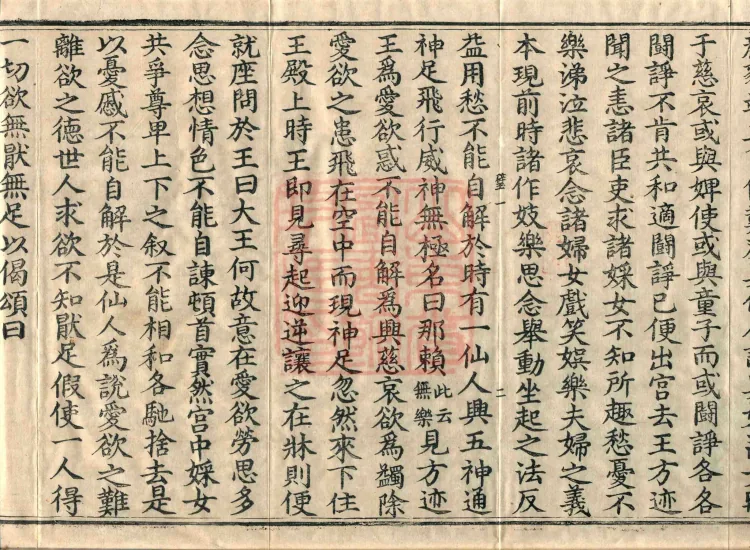 于慈哀或與婢使或與童子而或鬪諍各各
鬪諍不肯共和適鬪諍已便出宮去王方迹
聞之恚諸臣吏求諸婇女不知所趣愁憂不
樂涕泣悲哀念諸婦女戲笑娯樂夫婦之義
本現前時諸作妓樂思念舉動坐起之法反
益用愁不能自解於時有一仙人興五神通
神足飛行威神無極名曰那賴此云無樂見方迹
王爲愛欲惑不能自解爲興慈哀欲爲蠲除
愛欲之患飛在空中而現神足忽然來下住
王殿上時王即見尋起迎逆讓之在牀則便
就座問於王曰大王何故意在愛欲勞思多
念思想情色不能自諫頓首實然宮中婇女
共爭尊卑上下之叙不能相和各馳捨去是
以憂慼不能自解於是仙人爲說愛欲之難
離欲之德世人求欲不知猒足假使一人得
一切欲無猒無足以偈頌曰